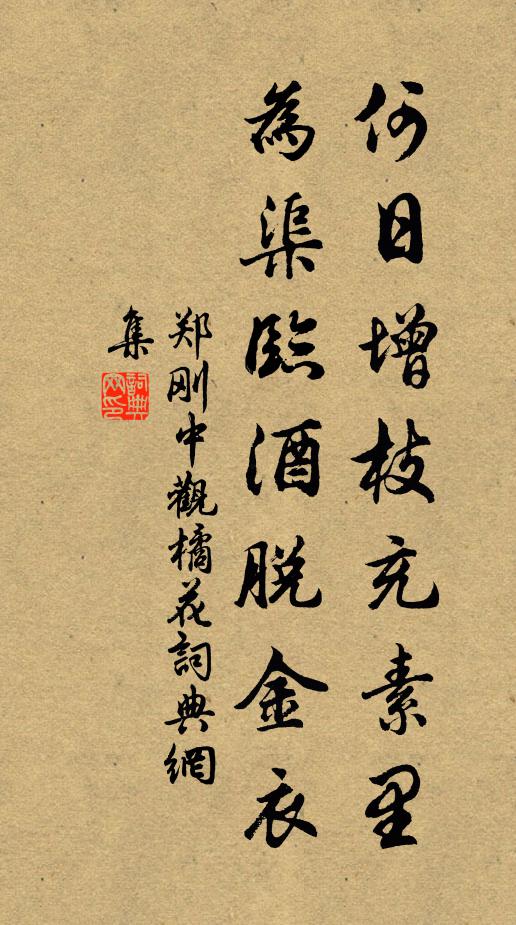 何日增枝充素里
為渠臨酒脱金衣
郑刚中觀橘花詞典網
集
詞典網印